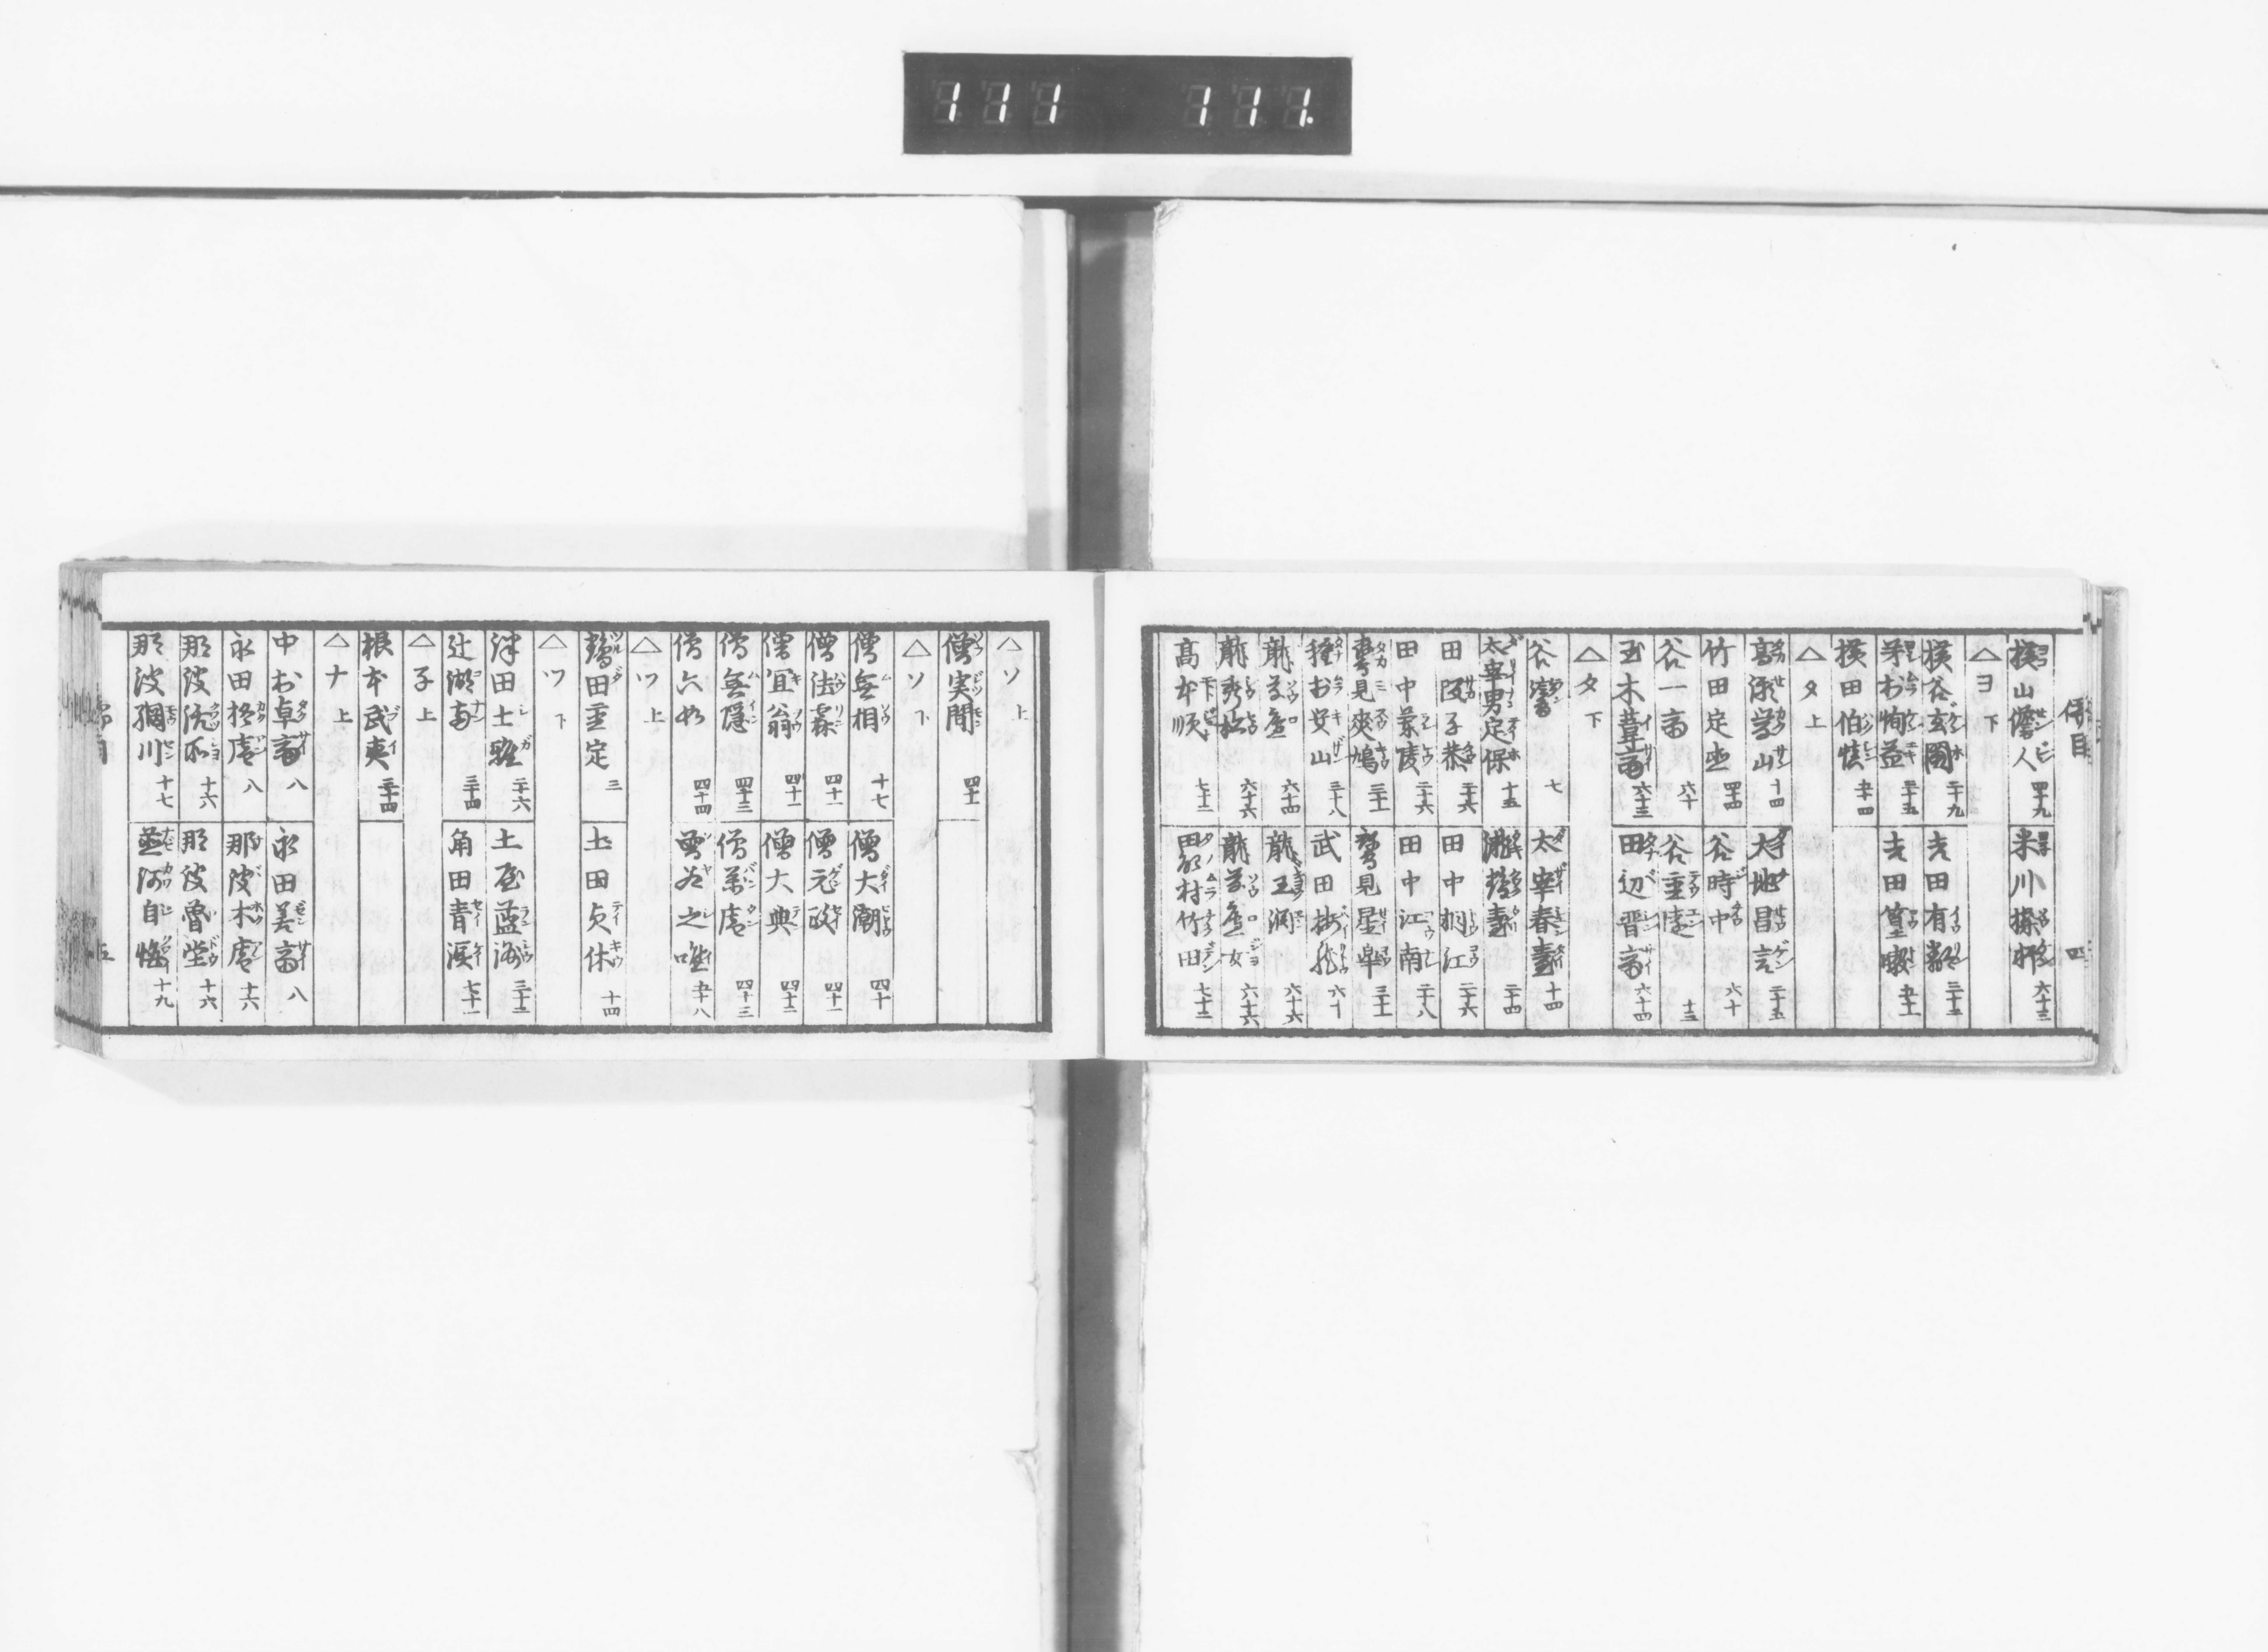 111 111.
横山儋人 四十九 米川操軒 六十三
△ヨ 下
横谷玄圃 二十九 吉田有鄰 三十二
芳村恂益 三十五 吉田篁墩 五十二
横田伯慎 五十四
△タ 上
高瀬学山 十四 大地昌言 三十五
竹田定直 四十四 谷時中 六十
谷一斎 六十 谷重遠 十三
玉木葦斎 六十三 田辺晋斎 六十四
△タ 下
谷 七 太宰春臺 十四
太宰男定保 十五 瀧鶴臺 二十四
田阪子恭 三十六 田中桐江 二十六
田中菊陵 三十六 田中江南 二十八
鷹見爽鳩 三十二 鷹見星皐 三十二
種村安山 三十八 武田梅龍 六十
龍草廬 六十四 龍玉淵 六十六
龍秀松 六十六 龍草廬女 六十六
高本順 七十二 田能村竹田 七十三
儒目 四
△ソ 上
僧実聞 四十二
△ソ 下
僧無相 十七 僧大潮 四十
僧法霖 四十一 僧元政 四十一
僧宜翁 四十一 僧大典 四十二
僧無隠 四十三 僧萬庵 四十三
僧六如 四十四 曽谷之唯 五十八
△ツ 上
鶴田重定 三 土田貞休 十四
△ツ 下
津田士雅 二十六 土屋藍洲 三十三
辻湖南 三十四 角田青渓 七十一
△子 上
根本武夷 三十四
△ナ 上
中村卓斎 八 永田善斎 八
永田搭庵 八 那波木庵 十六
那波活所 十六 那波曽堂 十六
那波綱川 十七 並河自悔 十九